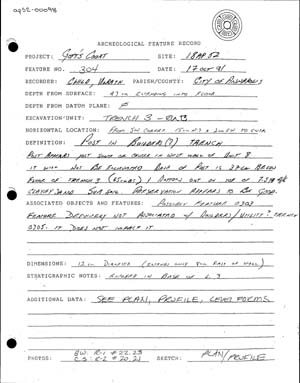 ap52-00098
ARCHEOLOGICAL FEATURE RECORD
PROJECT: Gott's Court SITE: 18AP52
FEATURE NO. 304 DATE: 17 Oct 91
RECORDER: PARISH/COUNTY: City of Annapolis
DEPTH FROM SURFACE: 47 cm extending into floor
DEPTH FROM DATUM PLANE:
EXCAVATION UNIT: TRENCH 3 -
HORIZONTAL LOCATION: From SW corner
DEFINITION: Post in Builders(?) Trench
Post appears just south of center in west wall of Unit 8
it will not be excavated. Base of post is below
floor of trench 3 bottom out on top of
sand subsoil. Preservation appears to be good.
ASSOCIATED OBJECTS AND FEATURES: Possibly Feature 0303
Feature Definitely not Associated w/ Builders/Utility? Trench
0305. It does not impact it
DIMENSIONS: 12 cm Diameter (extends only 8cm East of wall)
STRATIGRAPHIC NOTES: in Base of
ADDITIONAL DATA: See Plan, Profile, Level Forms
PHOTOS: BW: R-1 #22,23 SKETCH: Plan/
C.S: R-2 #20,21 Profile